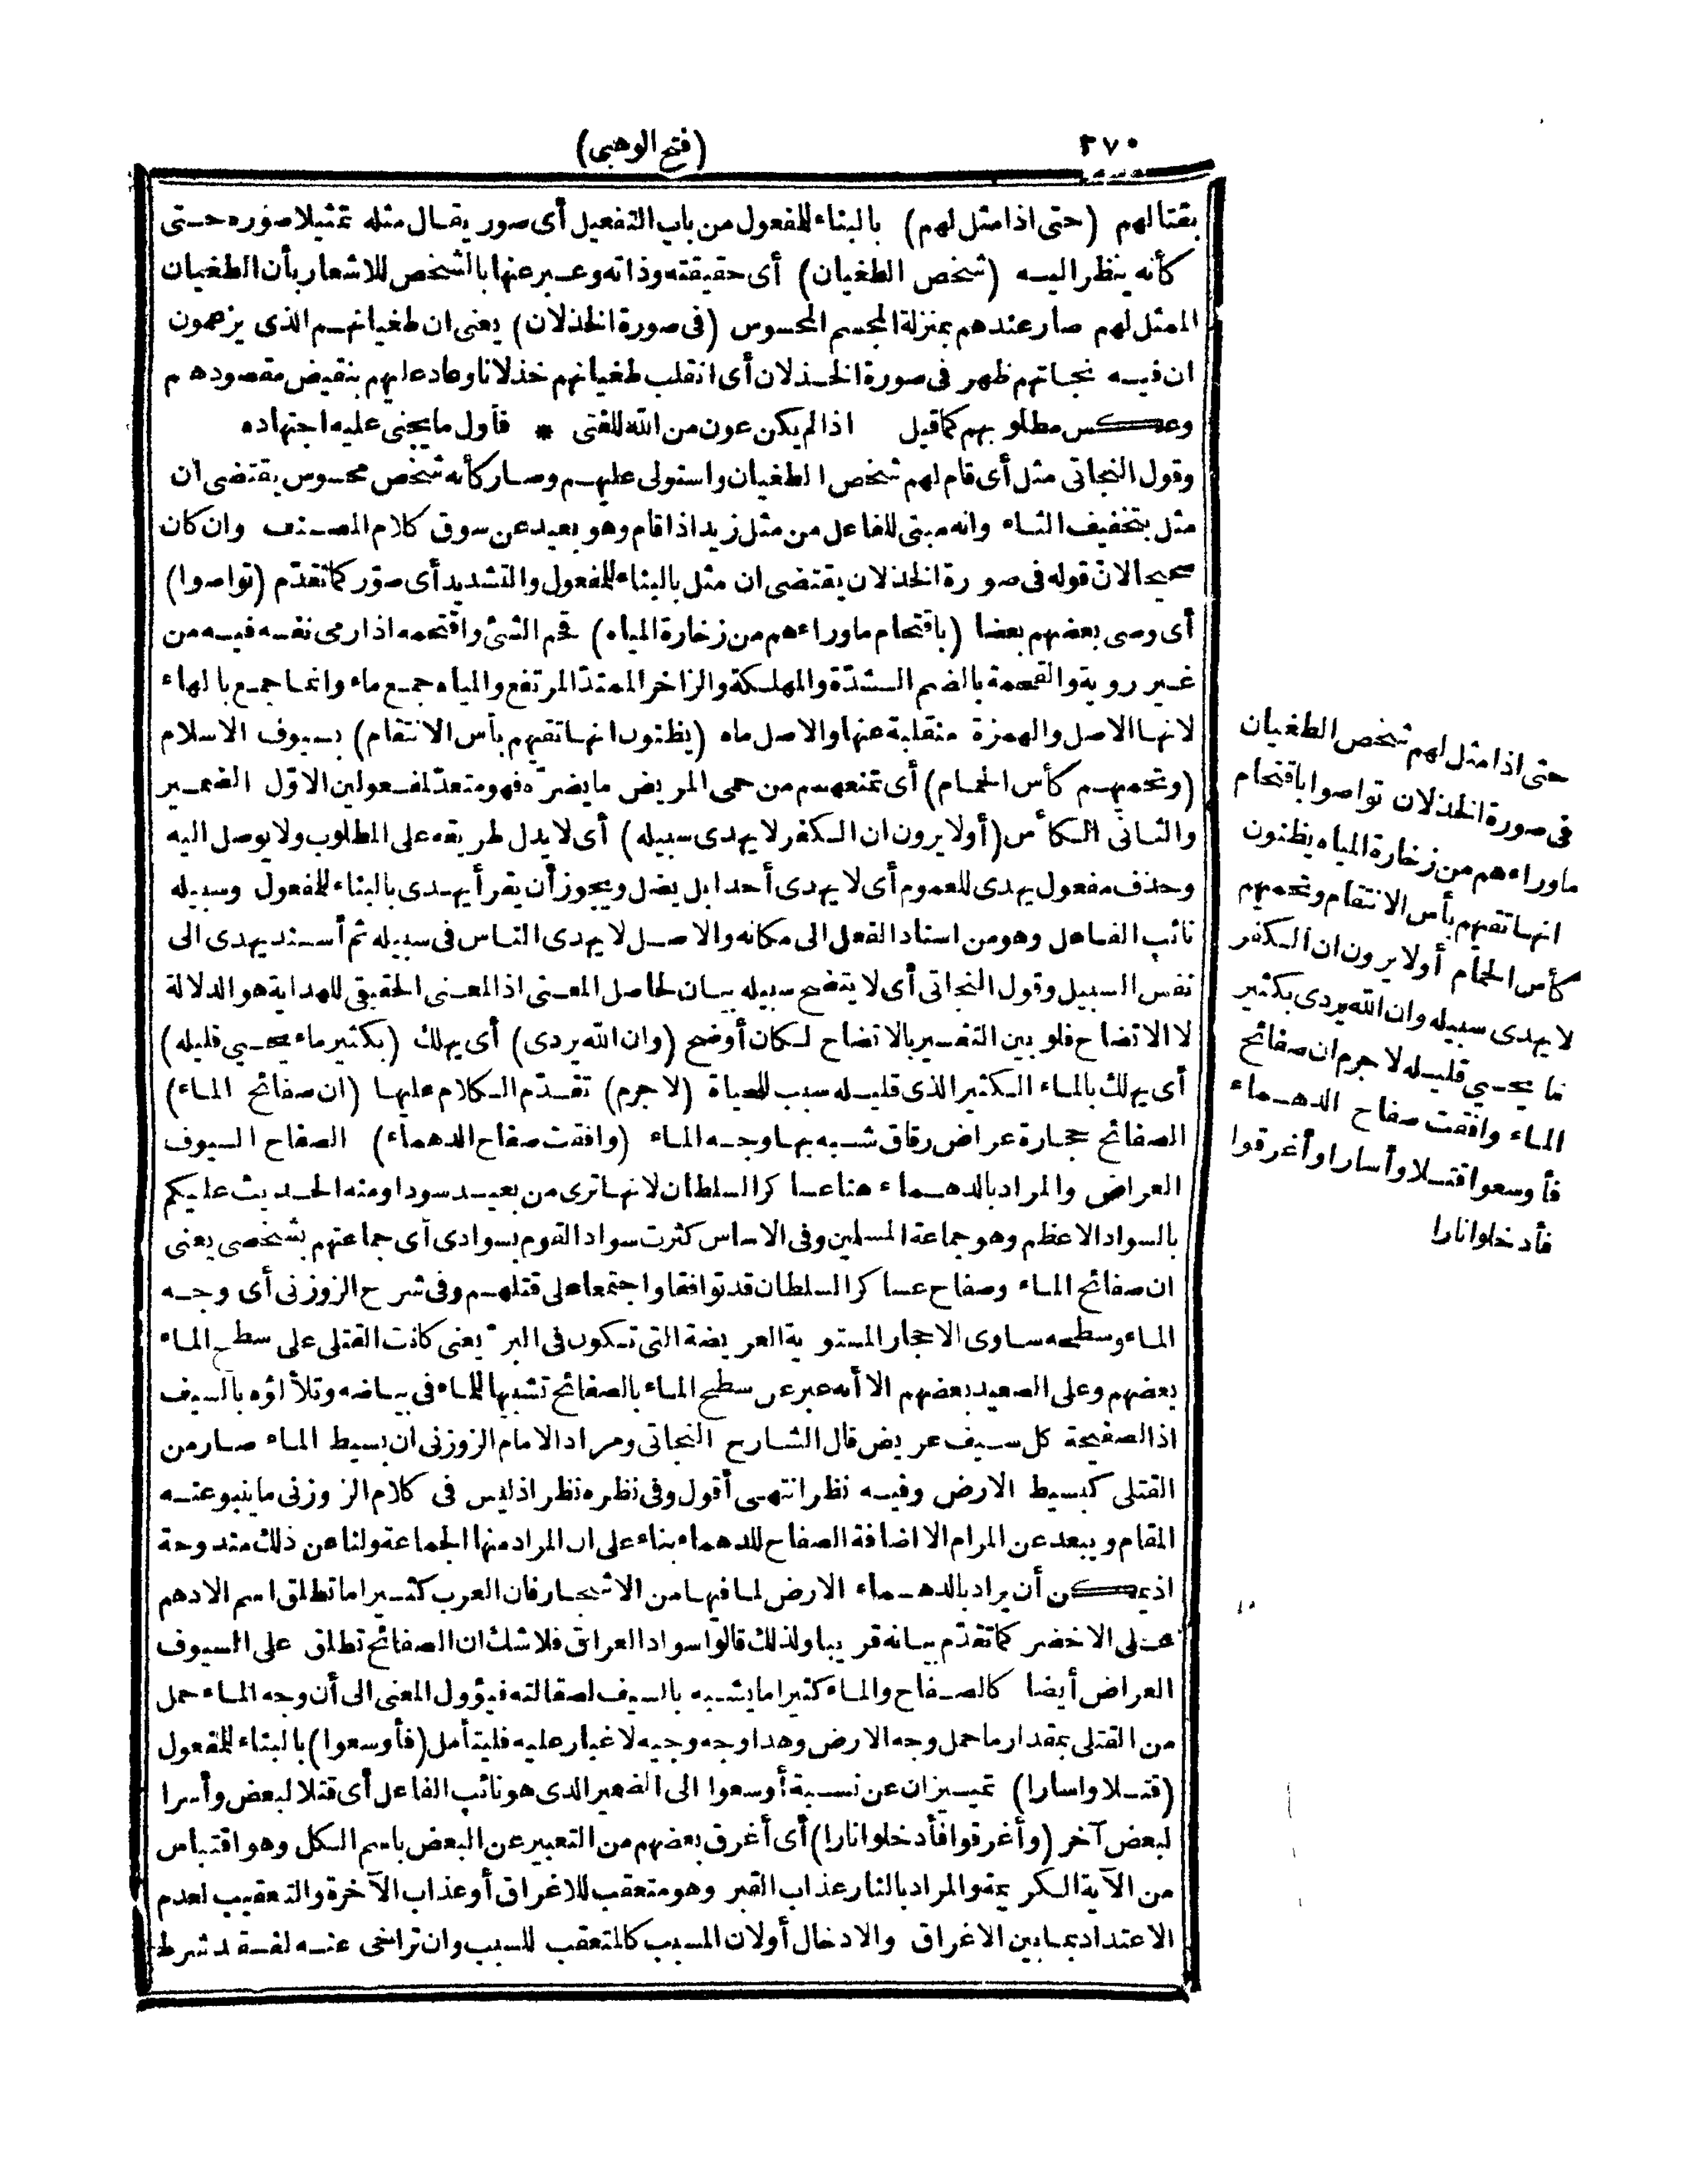 ٢٧٠
(فتح الوهبى)
بقتالهم (حتى اذا مثل لهم) بالبناء للمفعول من باب التفعيل أى صور يقال مثله تمثيلا صوّره حتى
كأنه ينظر اليه (شخص الطغيان) أى حقيقته وذاته وعبر عنها بالشخص للاشعار بأن الطغيان
الممثل لهم صار عندهم بمنزلة المجسم المحسوس (فى صورة الخذلان) يعنى ان طغيانهم الذى يزعمون
ان فيه نجاتهم ظهر فى صورة الخذلان أى انقلب طغيانهم خذلانا وعاد عليهم بنقيض مقصودهم
وعكس مطلوبهم كما قيل اذا لم يكن عون من الله للفتى * فأول ما يجنى عليه اجتهاده
وقول النجاتى مثل أى قام لهم شخص الطغيان واستولى عليهم وصار كأنه شخص محسوس يقتضى أن
مثل بتخفيف الثاء وانه مبنى للفاعل من مثل زيد اذا قام وهو بعيد عن سوق كلام المصنف وان كان
صحيحا لانّ قوله فى صورة الخذلان يقتضى ان مثل بالبناء للمفعول والتشديد أى صوّر كما تقدّم (تواصوا)
أى وصى بعضهم بعضا (باقتحام ماوراءهم من زخارة المياه) قحم الشئ واقتحمه اذا رمى نفسه فيه من
غير روية والقحمة بالضم الشدّة والمهلكة والزاخر الممتدّ المرتفع والمياه جمع ماء وانما جمع بالهاء
لانها الاصل والهمزة منقلبة عنها والاصل ماه (يظنون انها تقيهم بأس الانتقام) بسيوف الاسلام
(وتحميهم كأس الحمام) أى تمنعهم من حمى المريض مايضرّه فهو متعدّ لمفعولين الاوّل الضمير
والثانى الكأس (أولا يرون ان الكفر لا يهدى سبيله) أى لا يدل طريقه على المطلوب ولا يوصل اليه
وحذف مفعول يهدى للعموم أى لا يهدى أحدا بل يضل ويجوز أن يقرأ يهدى بالبناء للمفعول وسبيله
نائب الفاعل وهو من اسناد الفعل الى مكانه والاصل لا يهدى الناس فى سبيله ثم أسند يهدى الى
نفس السبيل وقول النجاتى أى لا يتضح سبيله بيان لحاصل المعنى اذ المعنى الحقيقى للهداية هو الدلالة
لا الاتضاح فلو بين التفسير بالاتضاح لكان أوضح (وان الله يردى) أى يهلك (بكثير ماء يحيى قليله)
أى يهلك بالماء الكثير الذى قليله سبب للحياة (لا جرم) تقدّم الكلام عليها (ان صفائح الماء)
الصفائح حجارة عراض رقاق شبه بها وجه الماء (وافقت صفاح الدهماء) الصفاح السيوف
العراض والمراد بالدهماء هنا عساكر السلطان لانها ترى من بعيد سودا ومنه الحديث عليكم
بالسواد الاعظم وهو جماعة المسلمين وفى الاساس كثرت سواد القوم بسوادى أى جماعتهم بشخصى يعنى
ان صفائح الماء وصفاح عساكر السلطان قد توافقا واجتمعا على قتلهم وفى شرح الزوزنى أى وجه
الماء وسطحه ساوى الاحجار المستوية العريضة التى تكون فى البرّ يعنى كانت القتلى على سطح الماء
بعضهم وعلى الصعيد بعضهم الا أنه عبر عن سطح الماء بالصفائح تشبيها للماء فى بياضه وتلألؤه بالسيف
اذ الصفيحة كل سيف عريض قال الشارح النجاتى ومراد الامام الزوزنى ان بسيط الماء صار من
القتلى كبسيط الارض وفيه نظر انتهى أقول وفى نظره نظر اذ ليس فى كلام الزوزنى ما ينبو عنه
المقام ويبعد عن المرام الا اضافة الصفاح للدهماء بناء على ان المراد منها الجماعة ولنا عن ذلك مندوحة
اذ يمكن أن يراد بالدهماء الارض لما فيها من الاشجار فان العرب كثيرا ما تطلق اسم الادهم
على الاخضر كما تقدّم بيانه قريبا ولذلك قالوا سواد العراق فلا شك ان الصفائح تطلق على السيوف
العراض أيضا كالصفاح والماء كثيرا ما يشبه بالسيف لصقالته فيؤول المعنى الى أن وجه الماء حمل
من القتلى بمقدار ما حمل وجه الارض وهذا وجه وجيه لا غبار عليه فليتأمل (فأوسعوا) بالبناء للمفعول
(قتلا واسارا) تمييزان عن نسبة أوسعوا الى الضمير الذى هو نائب الفاعل أى قتلا لبعض وأسرا
لبعض آخر (وأغرقوا فأدخلوا نارا) أى أغرق بعضهم من التعبير عن البعض باسم الكل وهو اقتباس
من الآية الكريمة والمراد بالنار عذاب القبر وهو متعقب للاغراق أو عذاب الآخرة والتعقيب لعدم
الاعتداد بما بين الاغراق والادخال أو لان المسبب كالمتعقب للسبب وان تراخى عنه لفقد شرط
حتى اذا مثل لهم شخص الطغيان
فى صورة الخذلان تواصوا باقتحام
ماوراءهم من زخارة المياه يظنون
انها تقيهم بأس الانتقام وتحميهم
كأس الحمام أولا يرون ان الكفر
لا يهدى سبيله وان الله يردى بكثير
ما يحيى قليله لا جرم ان صفائح
الماء وافقت صفاح الدهماء
فأوسعوا قتلا وأسارا وأغرقوا
فأدخلوا نارا